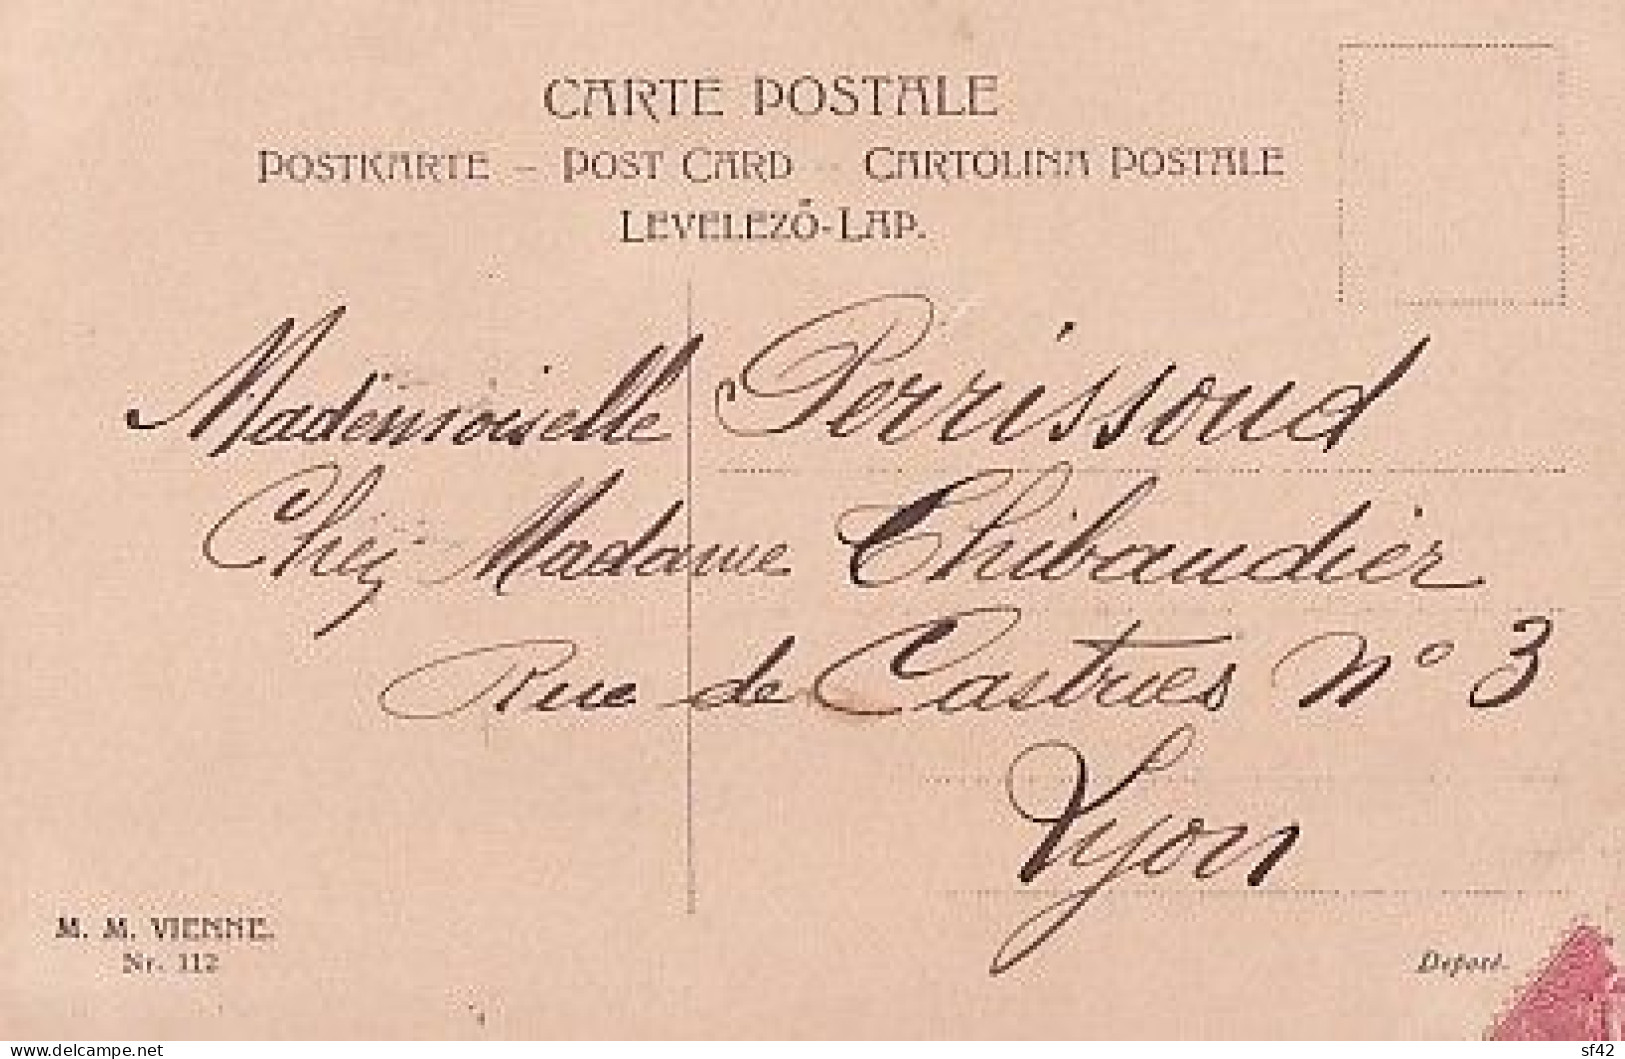 CARTE POSTALE
POSTKARTE – POST CARD – CARTOLINA POSTALE
LEVELEZŐ-LAP.
Mademoiselle Perrissoud
Chez Madame Thibaudier
Rue de Castries N° 3
Lyon
M. M. VIENNE.
Nr. 112
Deposé.
delcampe.net
sf42